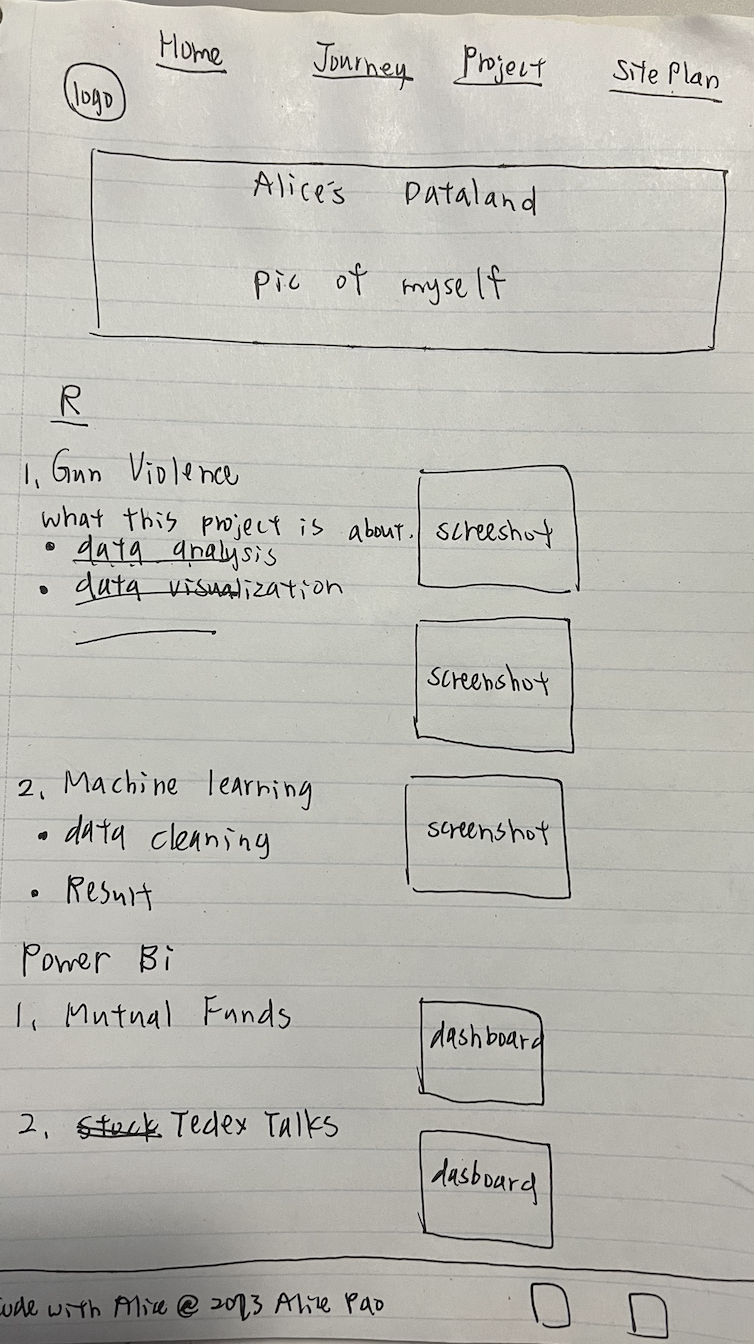 Home Journey Project Site Plan
logo
Alice's Dataland
pic of myself
R
1. Gun Violence
what this project is about.
• data analysis
• data visualization
screeshot
screenshot
2. Machine learning
• data cleaning
• Result
screenshot
Power Bi
1. Mutual Funds
dashboard
2. stock Tedex Talks
dasboard
with Alice @ 2023 Alice Pao